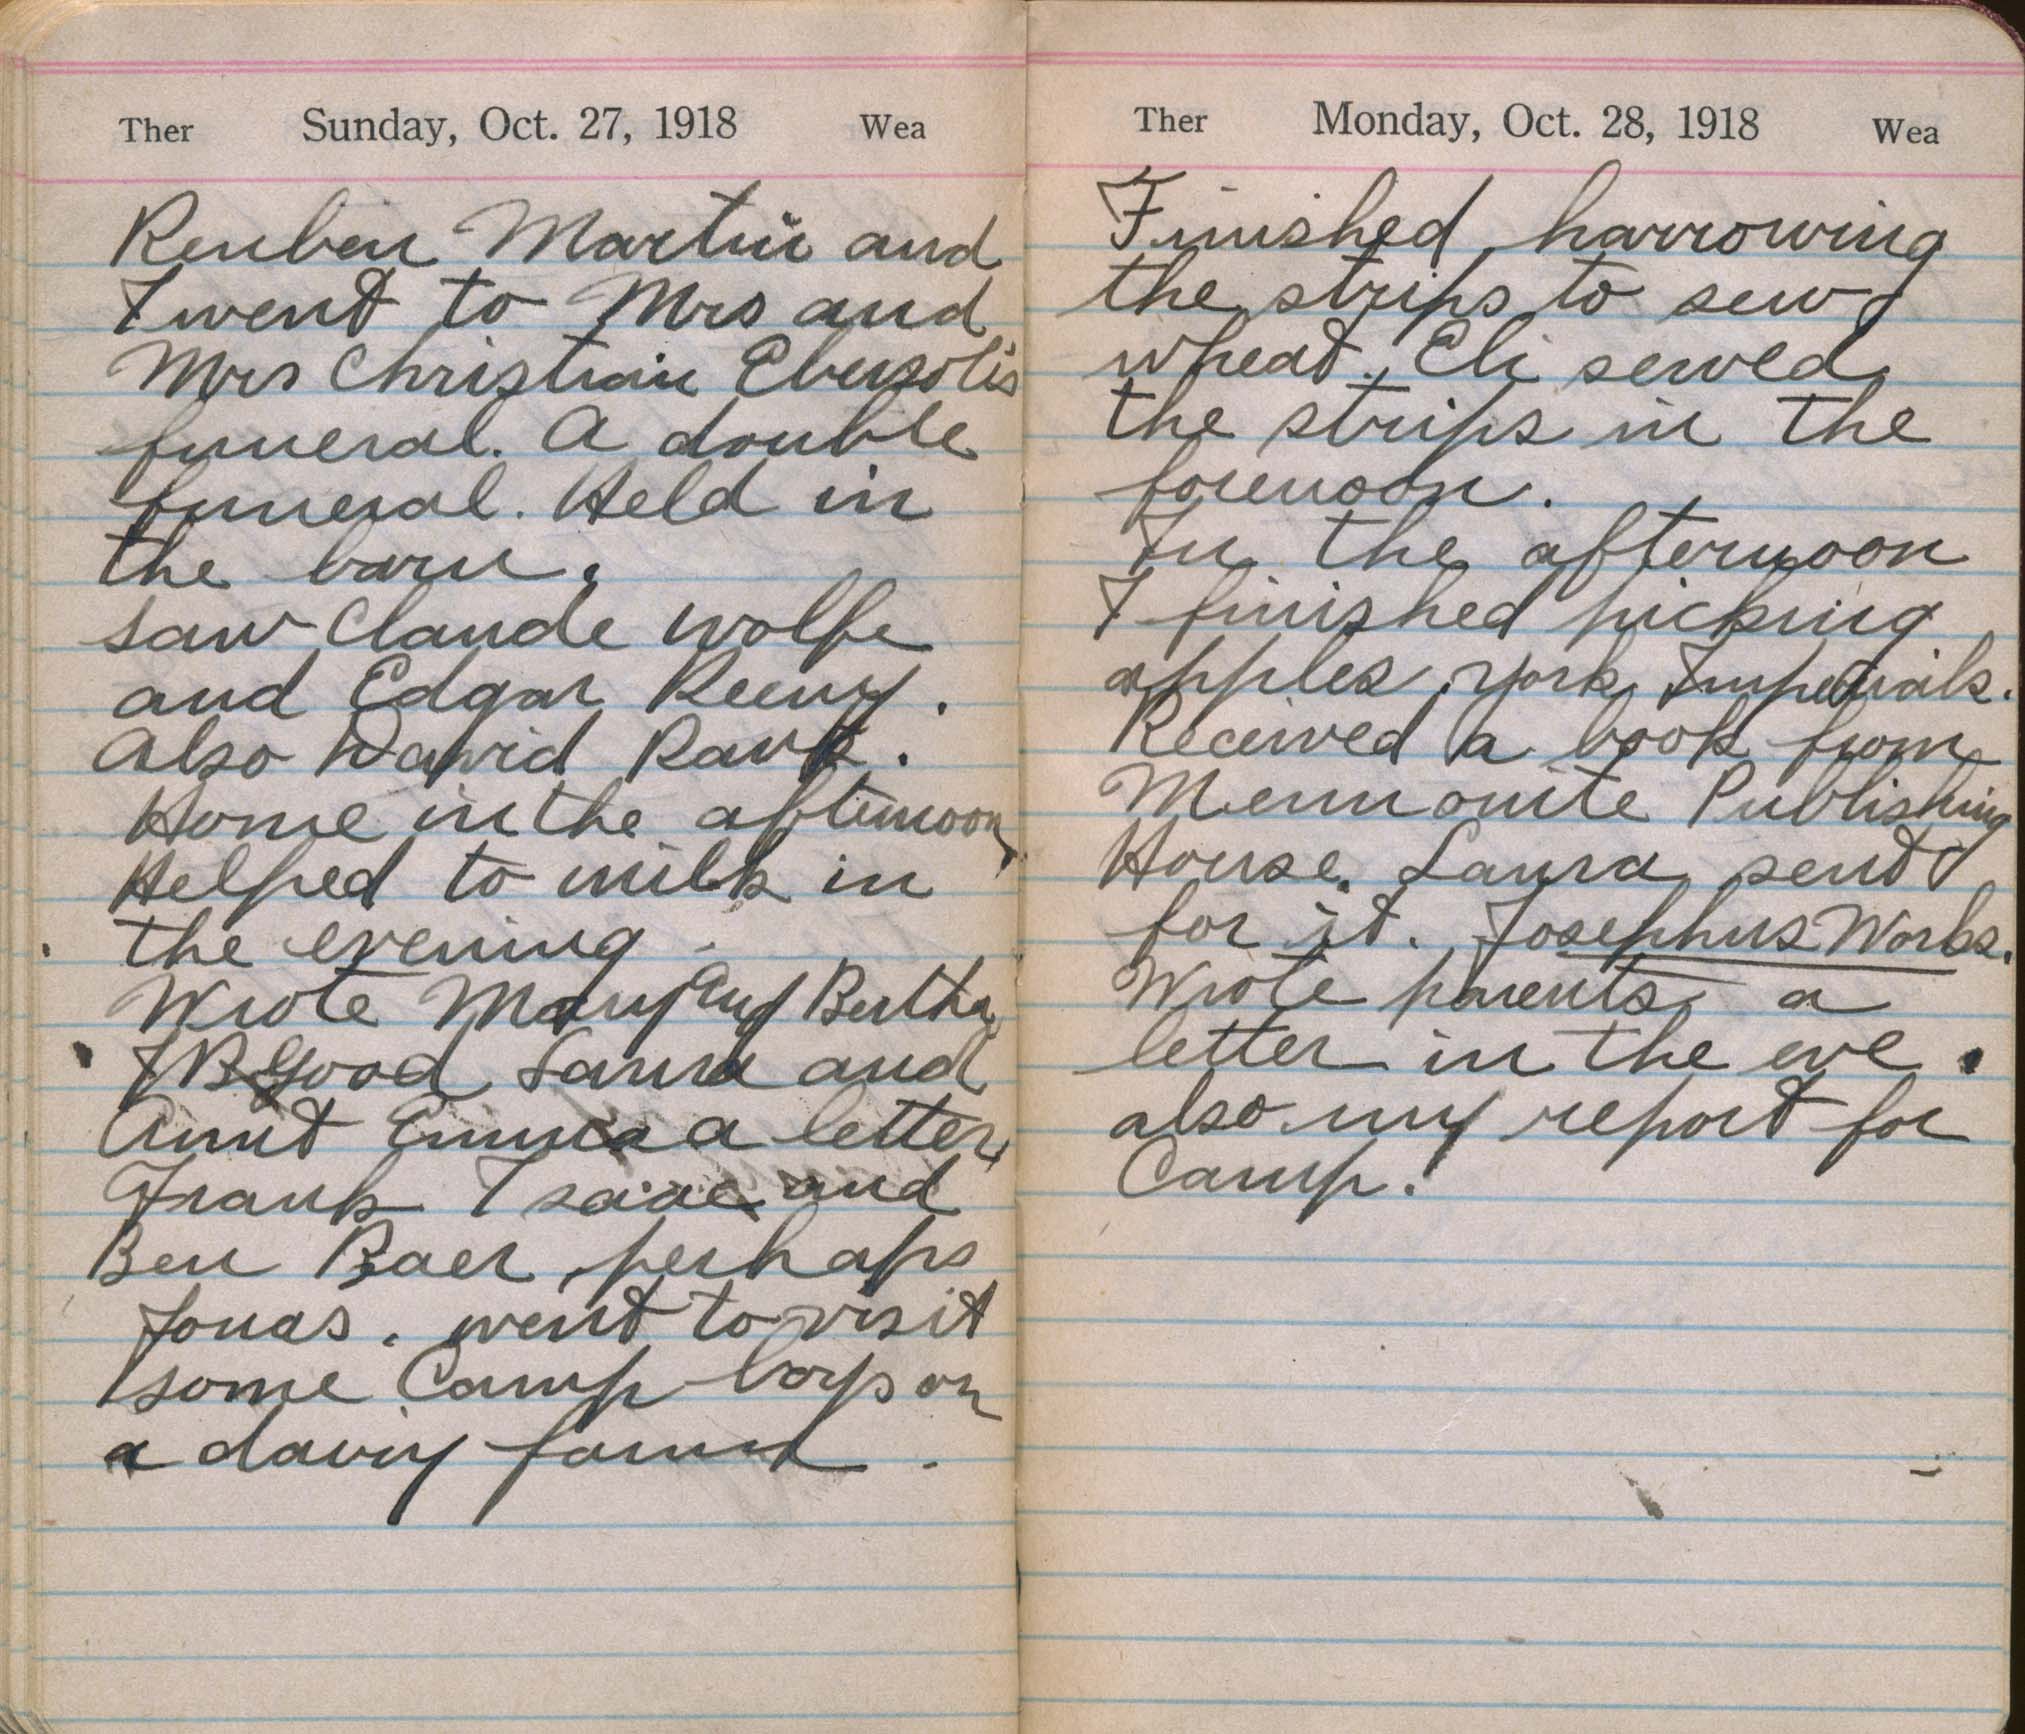 Ther Sunday, Oct. 27, 1918 Wea
Reuben Martin and
I went to Mrs and
Mrs Christian Ebersolis
funeral. A double
funeral. Held in
the barn.
saw Claude Wolfe
and Edgar
Also David
Home in the afternoon,
Helped to milk in
the evening.
Wrote Mary Bertha
Good Laura and
Aunt Emma a letter,
Frank Isaac and
Ben Baer perhaps
Jonas. went to visit
some Camp boys on
a dairy farm.
Ther Monday, Oct. 28, 1918 Wea
Finished harrowing
the strips to sew
wheat. Eli sewed
the strips in the
forenoon.
In the afternoon
I finished picking
apples, York Imperials.
Received a book from
Mennonite Publishing
House. Laura sent
for it. Josephus Works.
Wrote parents a
letter in the eve.
also my report for
Camp.